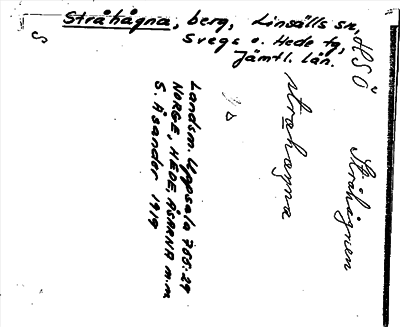 Stråhågna, berg, Linsälls sn,
Svegs o. Hede tg,
Jämtl. län.
HSÖ
S
Stråhågnen
strahagna
Landsm. Uppsala 755:29
NORGE, HEDE, ÅSARNA m.m.
S. Åsander 1919